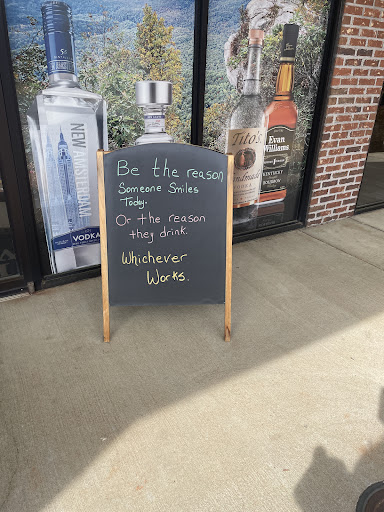 Be the reason
Someone Smiles
Today.
Or the reason
they drink.
Whichever
Works.
NEW AMSTERDAM
VODKA
Tito's
Handmade
Evan
Williams
KENTUCKY
BOURBON